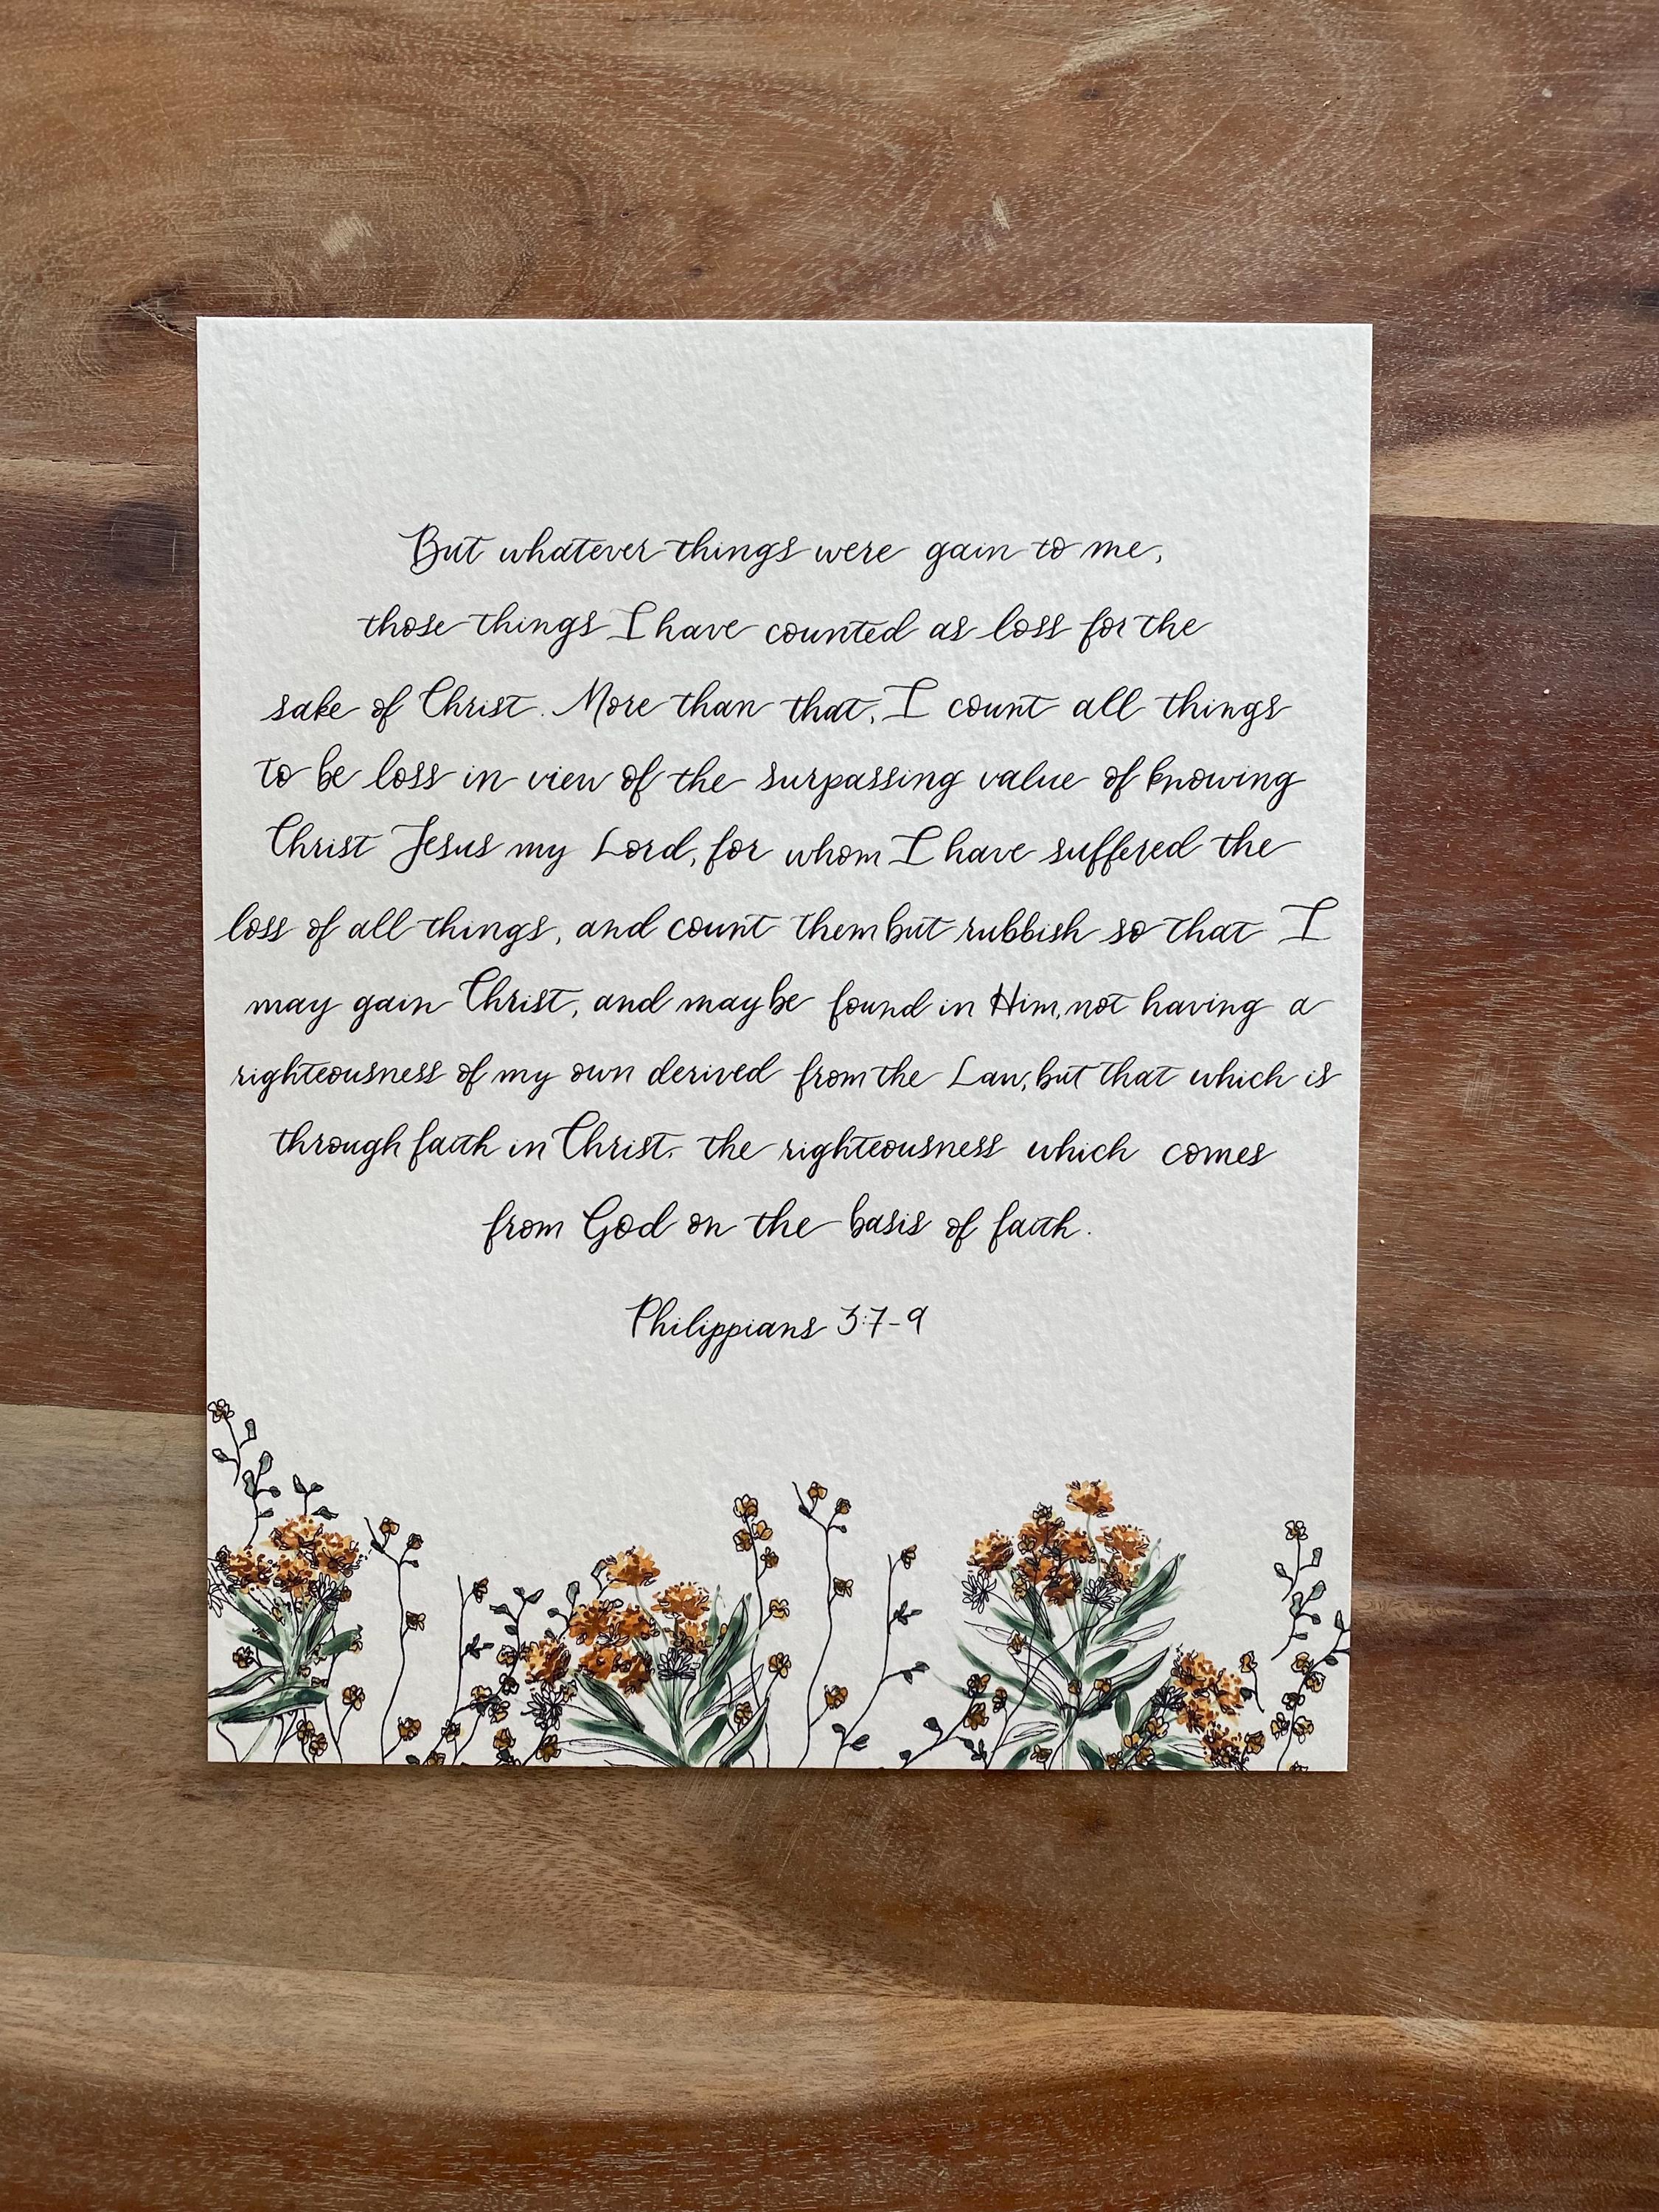 But whatever things were gain to me,
those things I have counted as loss for the
sake of Christ. More than that, I count all things
to be loss in view of the surpassing value of knowing
Christ Jesus my Lord, for whom I have suffered the
loss of all things, and count them but rubbish so that I
may gain Christ, and may be found in Him, not having a
righteousness of my own derived from the Law, but that which is
through faith in Christ, the righteousness which comes
from God on the basis of faith.
Philippians 3:7-9